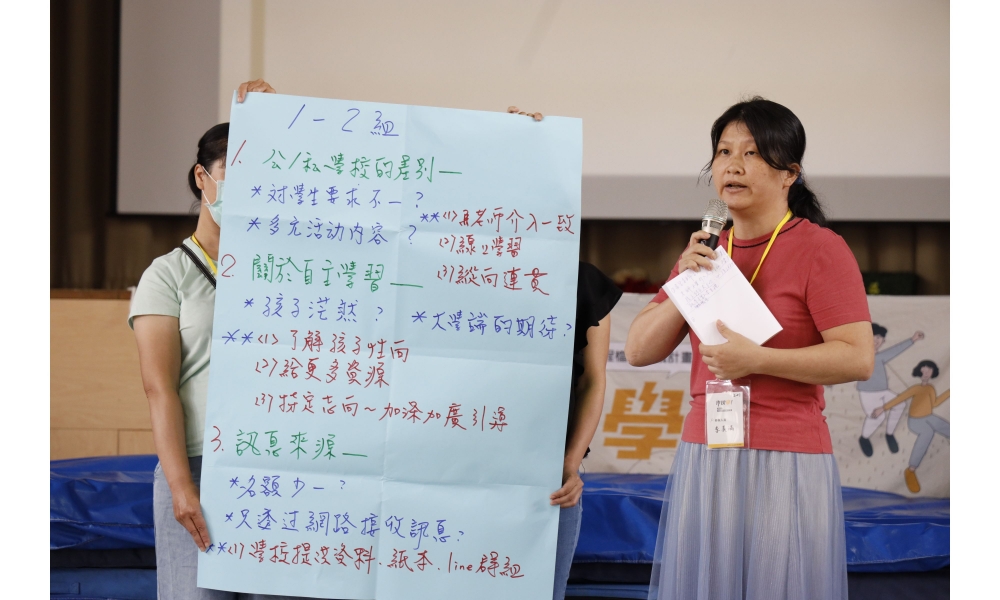 1-2組
1. 公/私學校的差別—
*对學生要求不一?
*多元活动內容?
**(1)再老师介入一致
(2)線上學習
(3)縱向連貫
2. 關於自主學習—
*孩子茫然?
*大學端的期待?
**(1)了解孩子性向
(2)給更多資源
(3)特定志向~加深加廣引導
3. 訊息來源—
*名額少—?
*只透过網路接收訊息?
**(1)學校提没資料.紙本.line群組
計畫
學